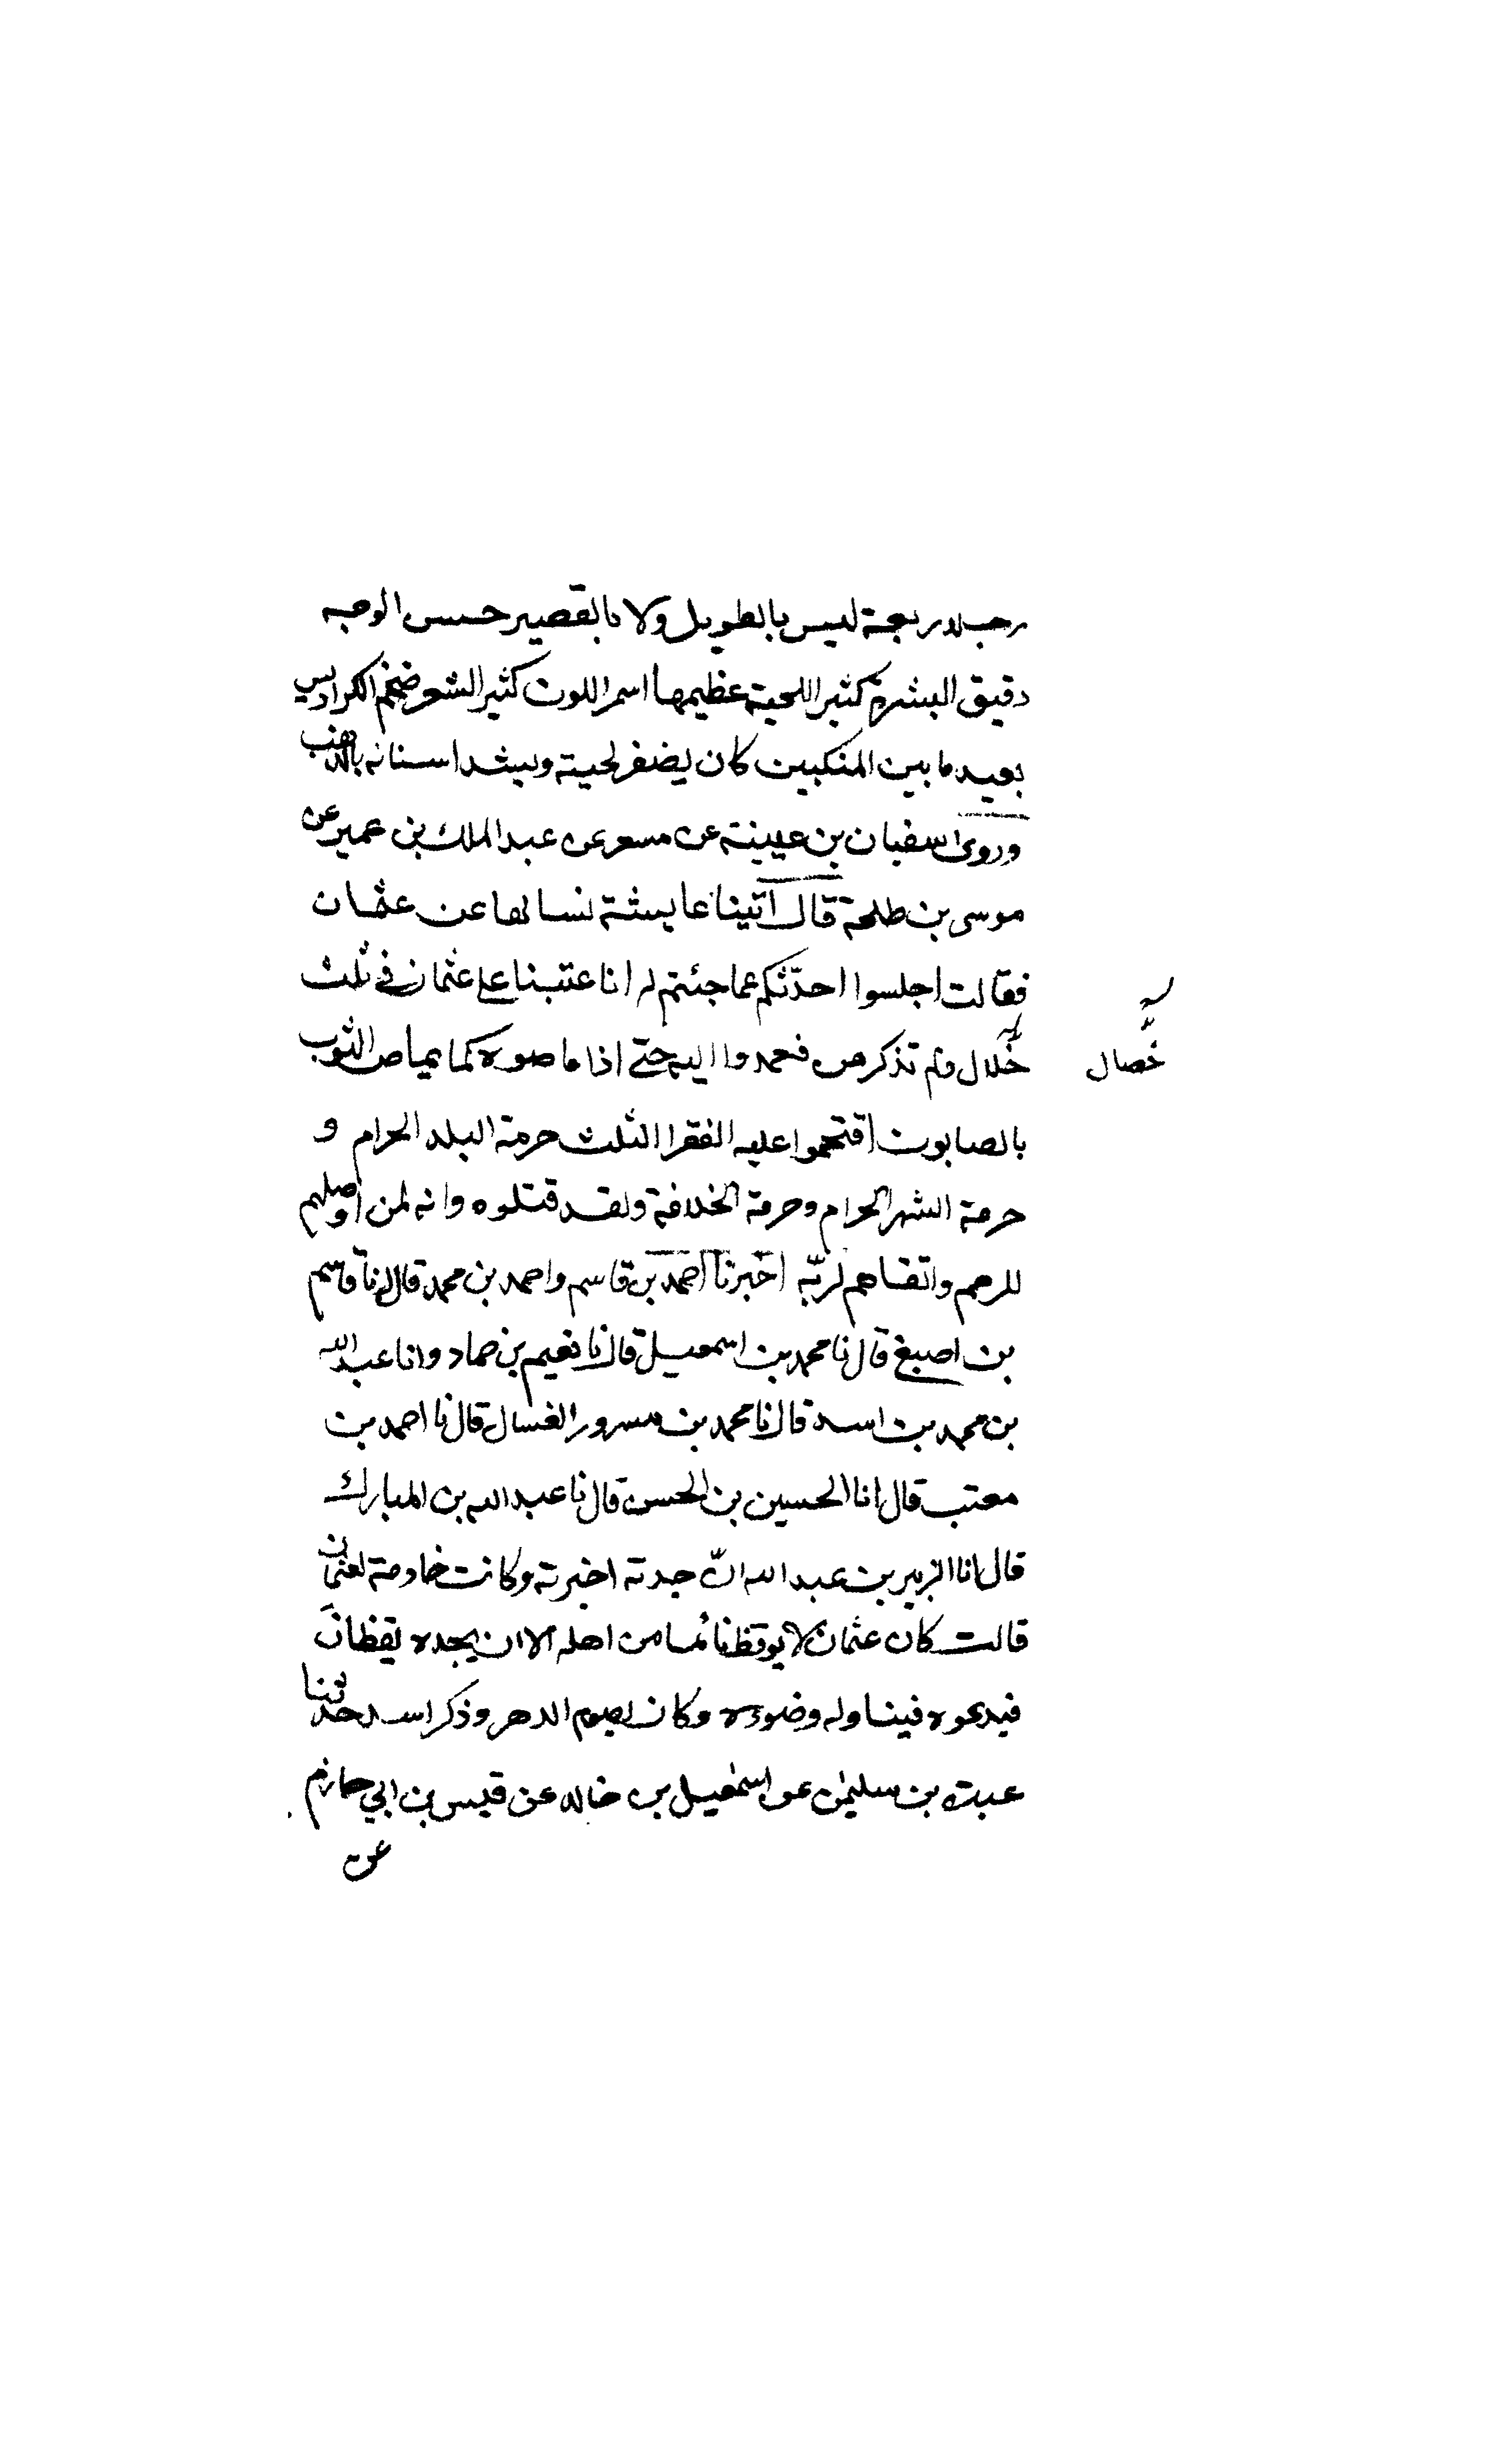 رجلا ربعة ليس بالطويل ولا بالقصير حسن الوجه
دقيق البشرة كثير اللحية عظيمها اسمر اللون كثير الشعر ضخم الكراديس
بعيد ما بين المنكبين كان يضفر لحيته ويشد اسنانه بالذهب
وروى سفيان بن عيينة عن مسعر عن عبد الملك بن عمير عن
موسى بن طلحة قال اتينا عايشة نسالها عن عثمان
فقالت اجلسوا احدّثكم عما جئتم له انا عتبنا على عثمان في ثلث
خلال ولم تذكرهن فعمدوا اليه حتى اذا ماصوه كما يماص الثوب
خصال
بالصابون اقتحموا عليه الفقر الثلث حرمة البلد الحرام و
حرمة الشهر الحرام وحرمة الخلافة ولقد قتلوه وانه لمن اوصلهم
للرحم واتقاهم لربّه اخبرنا احمد بن قاسم واحمد بن محمد قال نا قاسم
بن اصبغ قال نا محمد بن اسمعيل قال نا نعيم بن حماد وانا عبد الله
بن محمد بن اسد قال نا محمد بن مسرور الغسال قال نا احمد بن
معتب قال انا الحسين بن الحسن قال نا عبد الله بن المبارك
قال انا الزبير بن عبد الله انّ جدته اخبرته وكانت خادمة لعثمان
قالت كان عثمان لا يوقظ نائما من اهله الا ان يجده يقظان
فيدعوه فيناوله وضوءه وكان يصوم الدهر وذكر اسد حدثنا
عبدة بن سليمن عن اسمعيل بن خالد عن قيس بن ابي حازم
عن